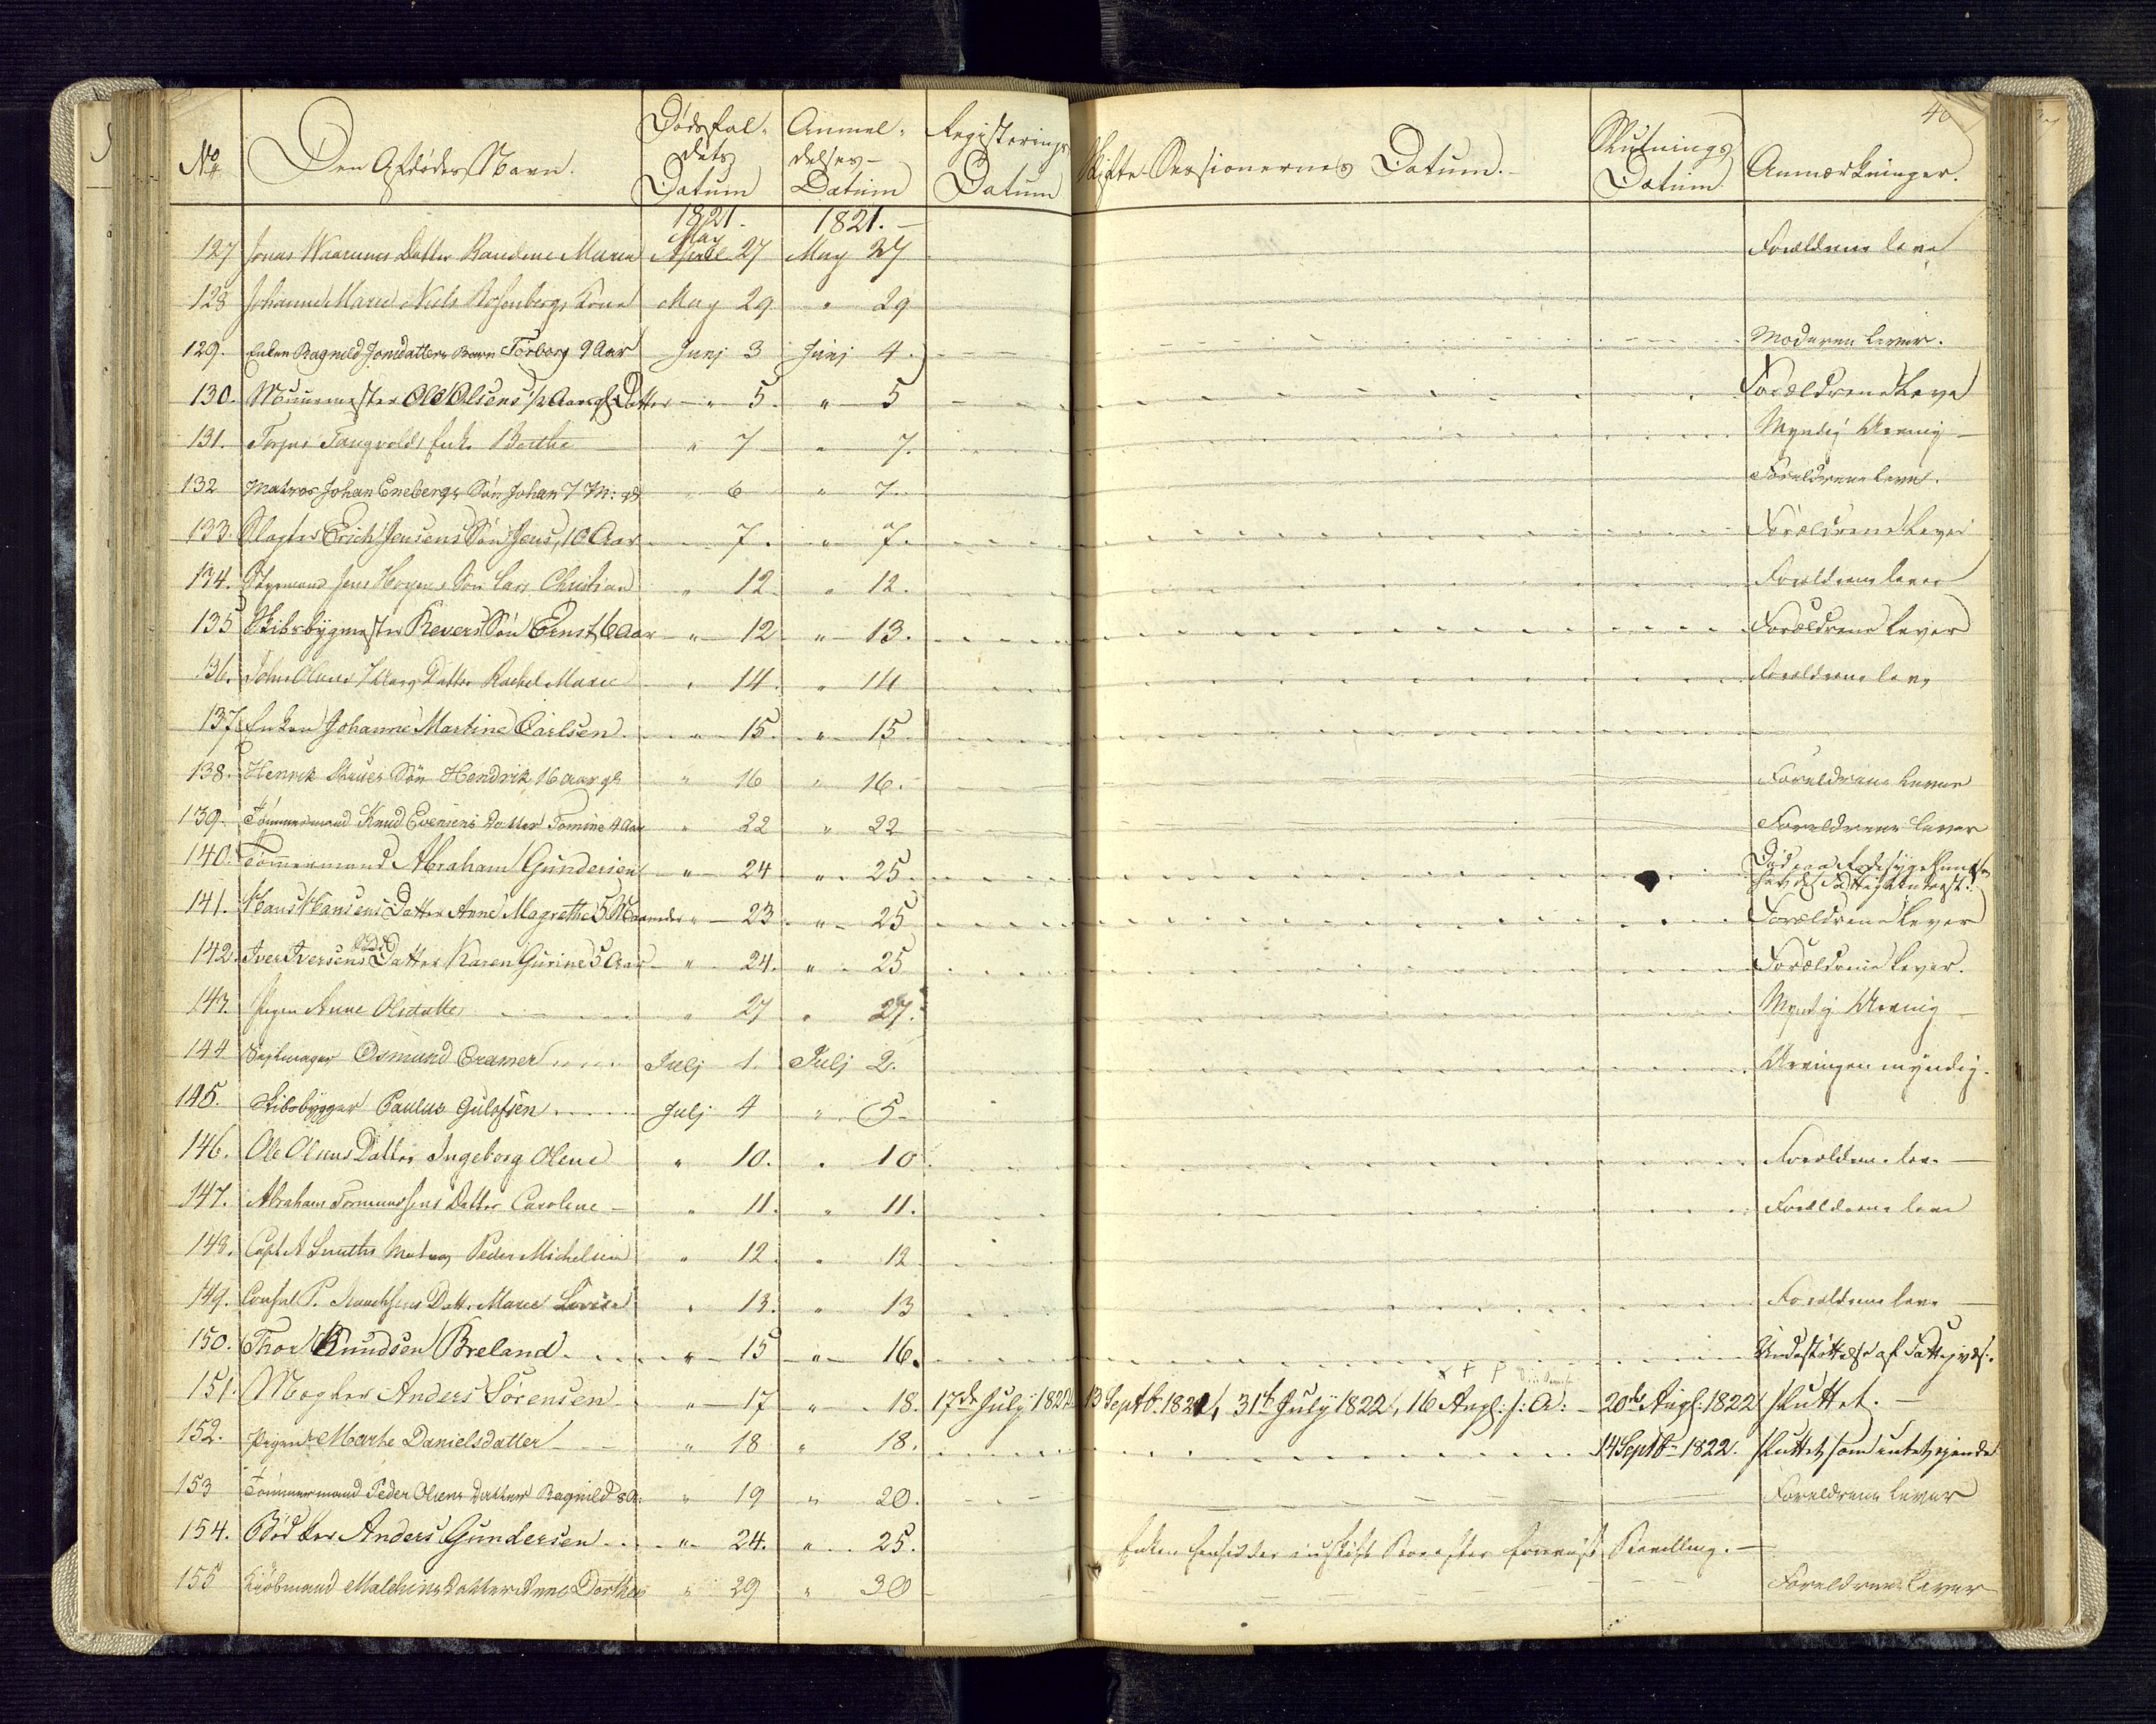 No. Den Afdødes Navn. Dødsfaldets Datum Anmeldelses Datum Registerings Datum Skifte Sessionernes Datum. Slutnings Datum Anmærkninger. 40
1821. 1821.
127 Jonas Datter Maren May April 27 May 27 Forældrene leve
128 Johanne Marie Niels Rosenbergs Kone May 29 " 29
129. Enken Ragnild Jonsdatters Barn Torborg 9 Aar Junj 3 Junj 4. Moderen lever.
130. Muurmester Ole Olsens 1/2 Aar gl: Datter " 5. " 5 Forældrene Leve
131. Enke Berthe " 7 " 7. Myndig Arving
132 Matros Johan Enebergs Søn Johan 7 M: gl " 6 " 7. Forældrene leve.
133. Slagter Erich Jensens Søn Jens, 10 Aar 7. " 7. Forældrene Lever
134. Styrmand Jens Søn Lars Christian " 12 " 12. Forældrene lever
135 Skibsbygmester Kevers Søn Ernst, 6 Aar " 12 " 13. Forældrene Lever
136. John Olsens 7 Aars Datter Rachel Marie " 14. " 14 Forældrene leve
137. Enken Johanne Martine Carlsen. " 15. " 15.
138. Henrik Søn Hendrik 16 aar gl " 16 " 16. Forældrene Lever
139. Tömmermand Knud Evensens Datter Tomine 4 Aar " 22 " 22 Forældrene lever
140. Tömmermand Abraham Gundersen " 24 " 25. Død paa
141. Hans Hansens Datter Anne Magrethe 5 Maaneder " 23 " 25 Forældrene Lever
142. Iver Iversens Datter Karen Gurine 5 Aar " 24. " 25 Forældrene Lever.
143. Pigen Anne Olsdatter " 27 " 27. Myndig Arving
144 Seglmager Osmund Cramer Julj 1. Julj 2. Arvingen myndig.
145. Skibsbygger Paulus Gulofsen Julj 4 " 5
146. Ole Olsens Datter Ingeborg Olene " 10. " 10 Forældrene leve
147. Abraham Datter Caroline " 11. " 11. Forældrene leve
148. Capt A Smiths Matros Peder Michelsen " 12. " 12
149. Consul P. Datt. Maren " 13. " 13 Forældrene leve
150. Thor Knudsen Breland. " 15 " 16. Understöttelse af Fattigvæs:
151. Mægler Anders Sörensen " 17 " 18. 17de July 1822 13 Septb. 1821, 31te July 1822, 16 Augl: s: A: 20de Augl: 1822 sluttet.
152. Pigen Marthe Danielsdatter " 18 " 18. 14 Septbr 1822. sluttet, som intet ejende
153 Tömmermand Peder Olsens Datter Ragnild 8 A: " 19 " 20. Forældrene lever
154. Bödker Anders Gundersen " 24. " 25. Enken hensidder i uskift Boe efter Bevilling.
155 Kiöbmand Malchins Datter Anne Dorthea " 29 " 30 Forældrene lever